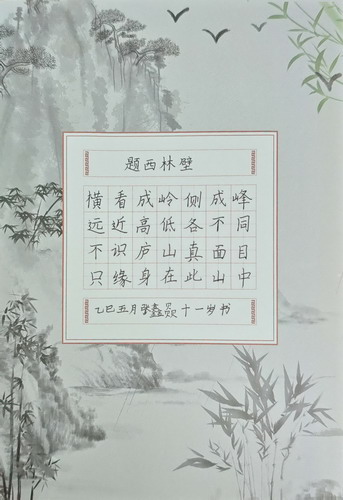 题西林壁
横看成岭侧成峰
远近高低各不同
不识庐山真面目
只缘身在此山中
乙巳五月张鑫焱十一岁书